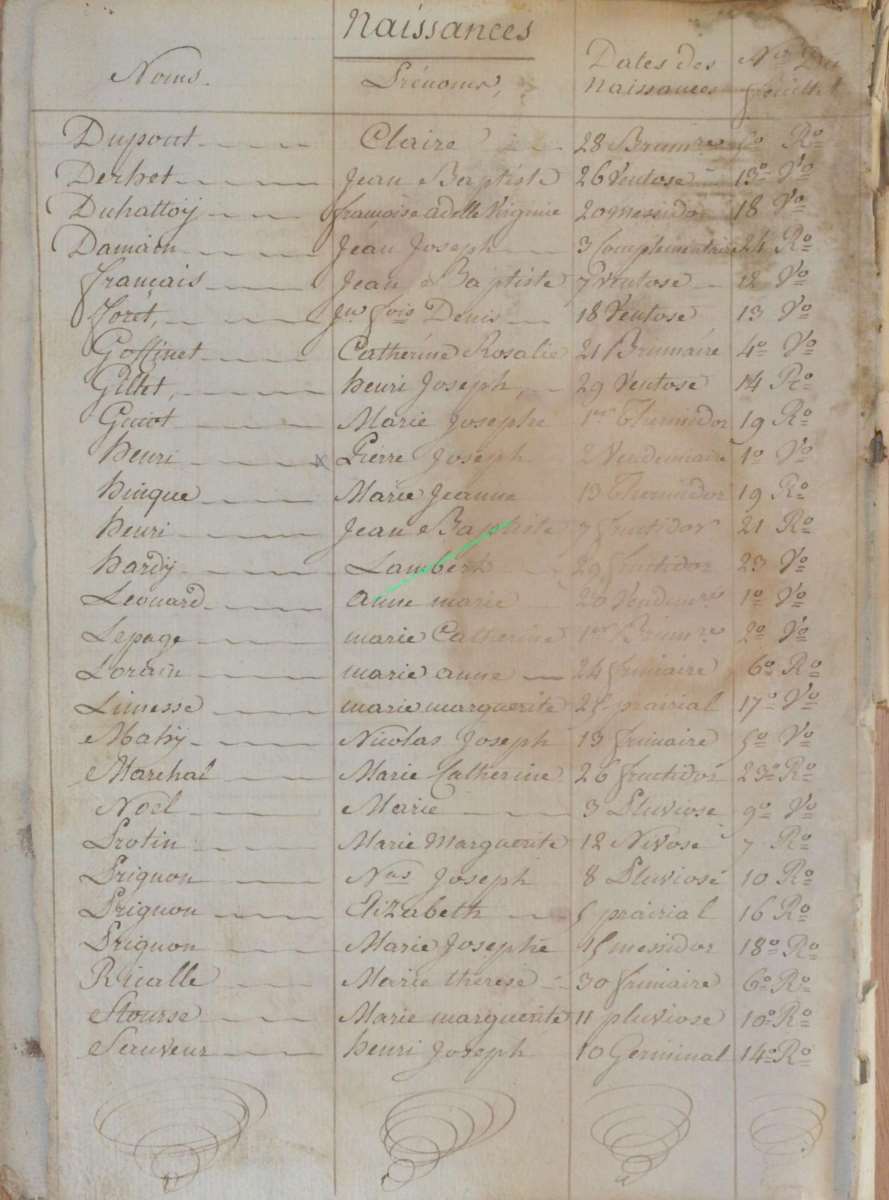 Naissances
Noms. Prénoms, Dates des Naissances Nos Du feuillet
Dupont Claire 28 Brumre Ro
Derhet Jean Baptiste 26 Ventose 13o Vo
Duhattoÿ françoise adelle Virginie 20 Messidor 18 Vo
Damion Jean Joseph 3 Complimentaire 24 Ro
français Jean Baptiste 7 Ventose 12 Vo
foret, Jn fois Denis 18 Ventose 13 Vo
Goffinet Catherine Rosalie 21 Brumaire 4o Vo
Gillet, henri Joseph, 29 Ventose 14 Ro
Guiot Marie Josephe 1er Thermidor 19 Ro
henri x Pierre Joseph 2 Vendemiaire 1o Vo
hinque Marie Jeanne 13 Thermidor 19 Ro
henri Jean Baptiste 7 fructidor 21 Ro
hardÿ Lambert 29 fructidor 23 Vo
Leonard anne marie 20 Vendemre 1o Vo
Lepage marie Catherine 1er Brumre 2o Vo
Lorain marie anne 24 frimaire 6o Ro
Limesse marie marguerite 25 prairial 17o Vo
Mahÿ Nicolas Joseph 13 frimaire 5o Vo
Marchal Marie Catherine 26 fructidor 23o Ro
Noël Marie 3 Pluviose 9o Vo
Protin Marie Marguerite 12 Nivose 7 Ro
Prignon Nas Joseph 8 Pluviose 10 Ro
Prignon Elizabeth 5 prairial 16 Ro
Prignon Marie Josephe 15 messidor 18o Ro
Ricalle Marie therese 30 frimaire 6o Ro
Stourse Marie marguerite 11 pluviose 10o Ro
Sauveur henri Joseph 10 Germinal 14o Ro